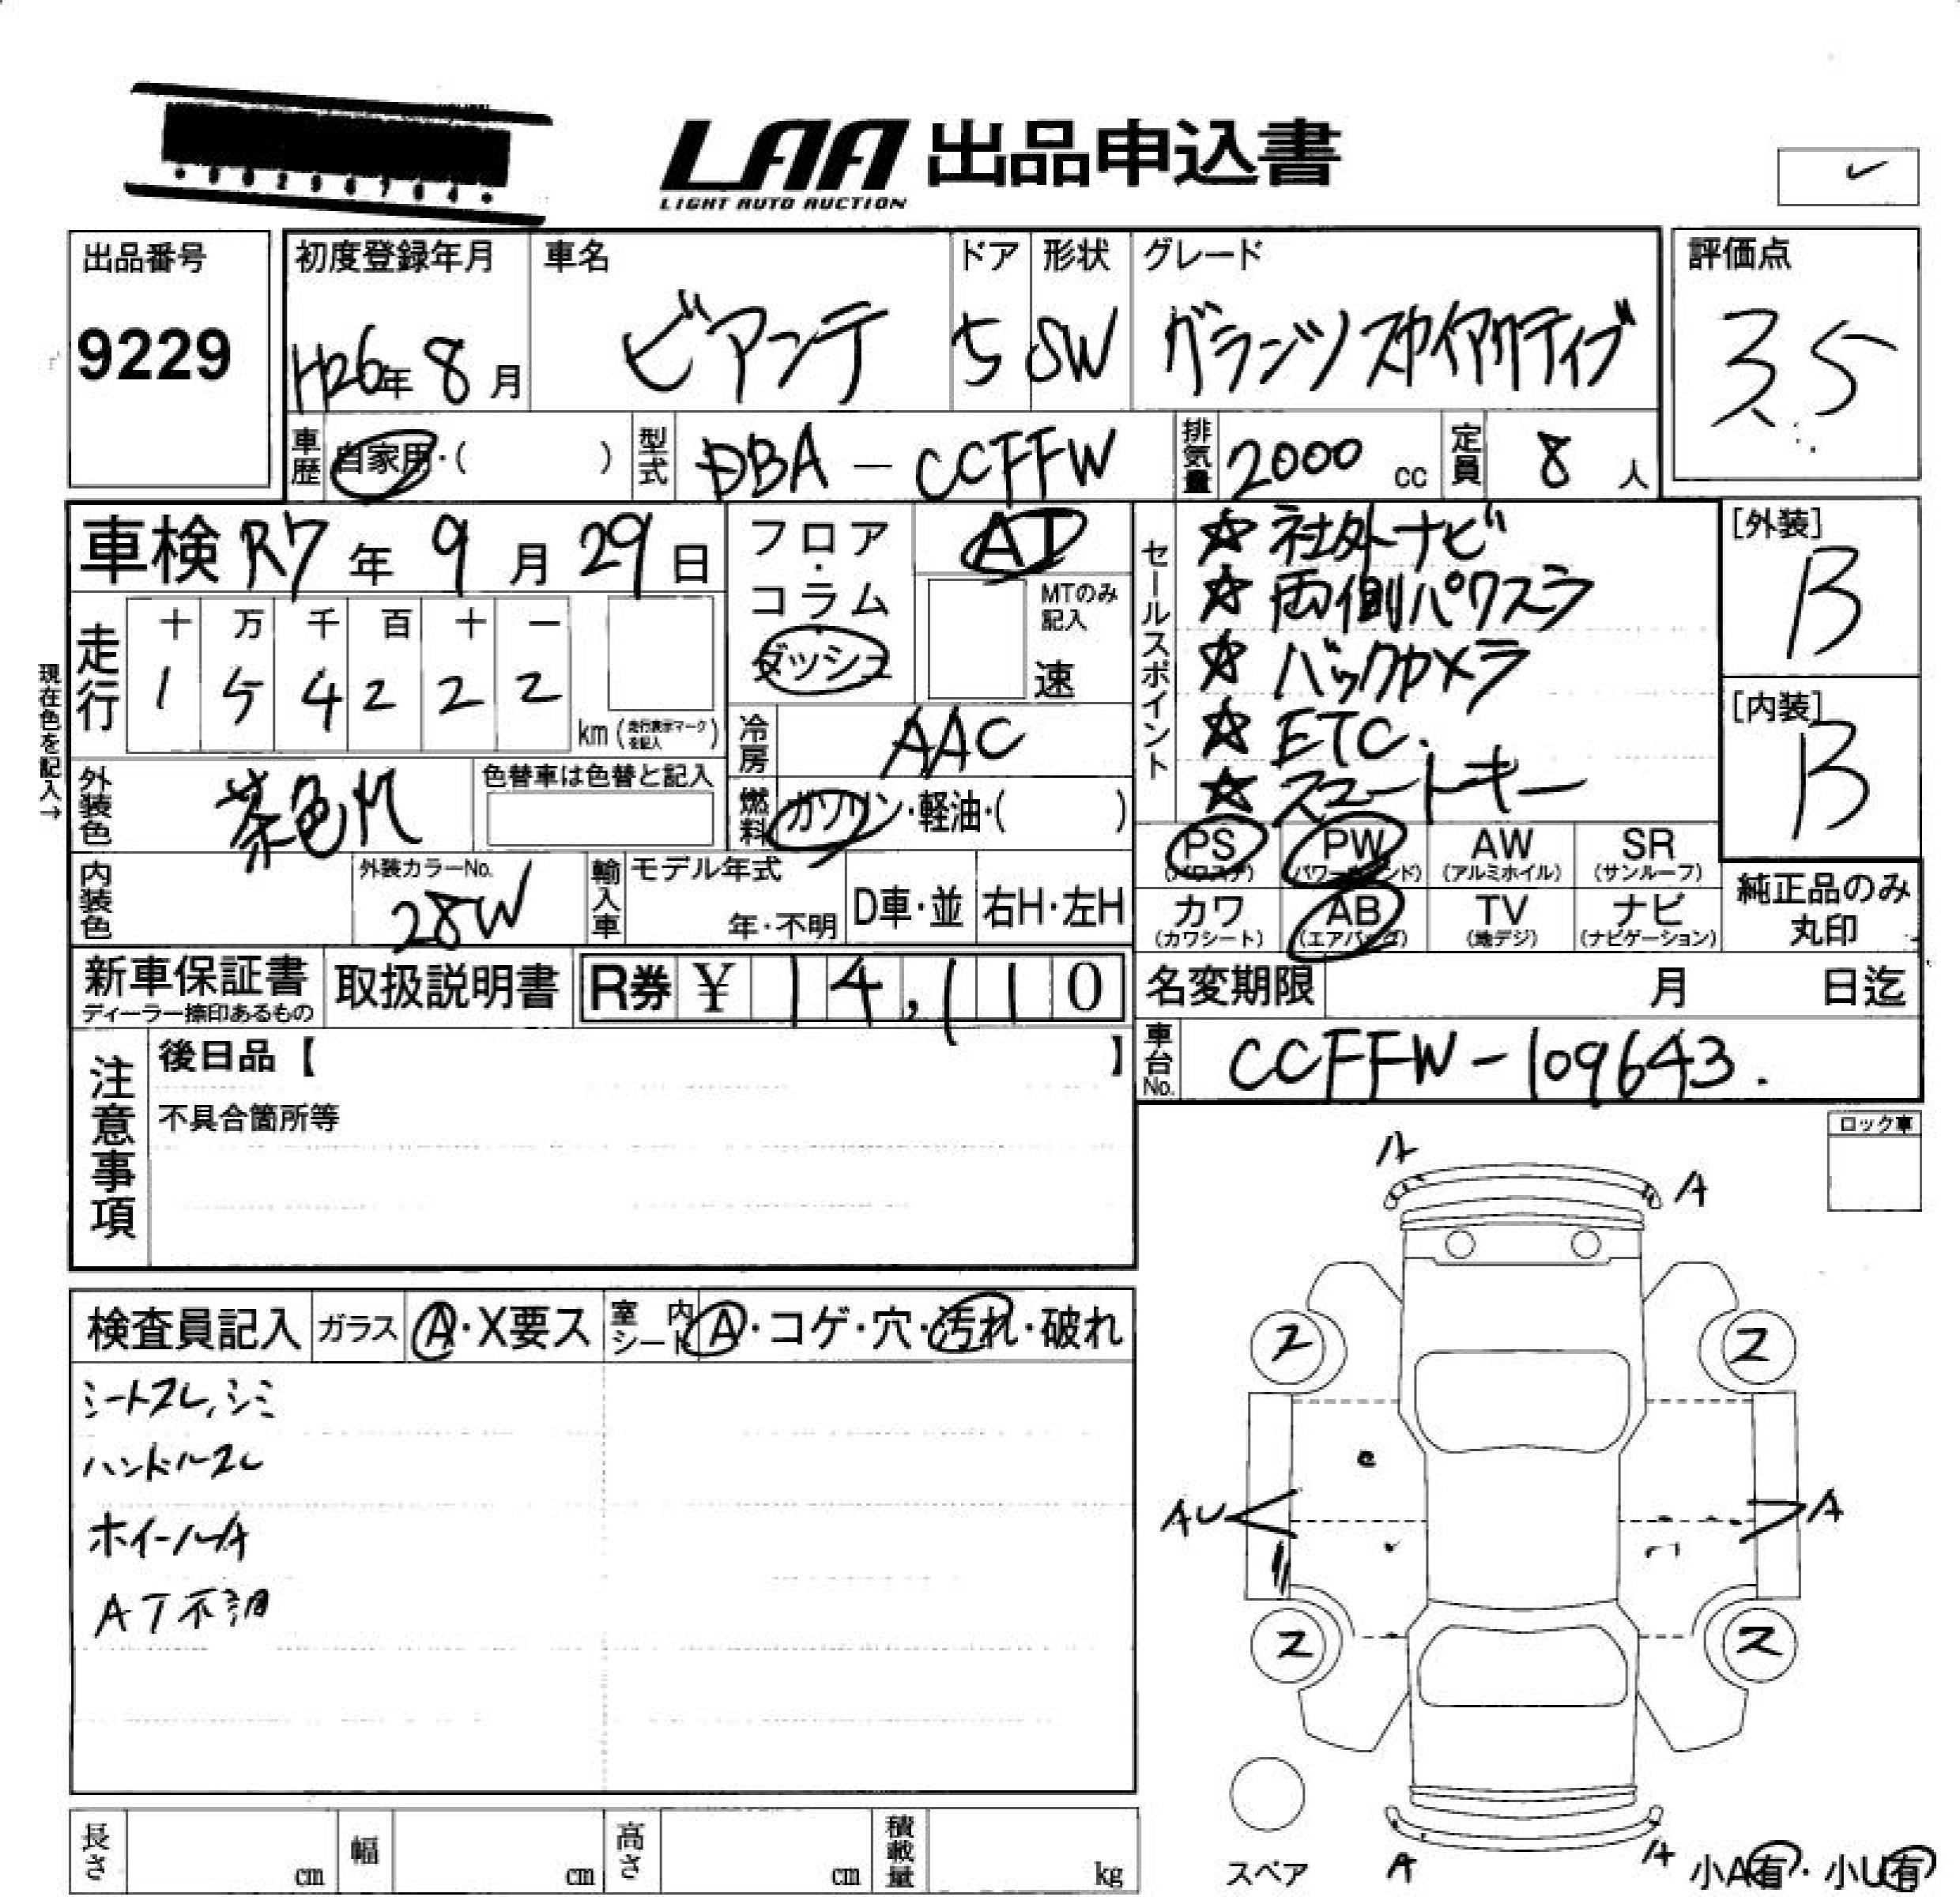 LAA 出品申込書
LIGHT AUTO AUCTION
出品番号
9229
初度登録年月
H26年8月
車名
ビアンテ
ドア
5
形状
SW
グレード
グランツ スカイアクティブ
評価点
3.5
車歴
自家用・( )
型式
DBA-CCFFW
排気量
2000 cc
定員
8 人
車検 R7年9月29日
フロア・コラム
ダッシュ
AT
MTのみ記入
速
セールスポイント
☆ 社外ナビ
☆ 両側パワスラ
☆ バックカメラ
☆ ETC.
☆ スマートキー
[外装]
B
[内装]
B
現在色を記入→
走行
十 万 千 百 十 一
1 5 4 2 2 2
km (走行表示マークを記入)
冷房
AAC
外装色
茶色M
色替車は色替と記入
燃料
ガソリン・軽油・( )
PS
(パワステ)
PW
(パワーウインド)
AW
(アルミホイル)
SR
(サンルーフ)
内装色
外装カラーNo.
28W
輸入車
モデル年式
年・不明
D車・並
右H・左H
カワ
(カワシート)
AB
(エアバッグ)
TV
(地デジ)
ナビ
(ナビゲーション)
純正品のみ
丸印
新車保証書
ディーラー捺印あるもの
取扱説明書
R券 ¥ 14,110
名変期限 月 日迄
注意事項
後日品【 】
不具合箇所等
車台No.
CCFFW-109643.
ロック車
検査員記入
ガラス
A・X要ス
室内シート
A・コゲ・穴・汚れ・破れ
シートスレ,シミ
ハンドルスレ
ホイールA
AT不調
A
A
ス
ス
AU
A
ス
ス
スペア
A
A
小A有・小U有
長さ cm
幅 cm
高さ cm
積載量 kg